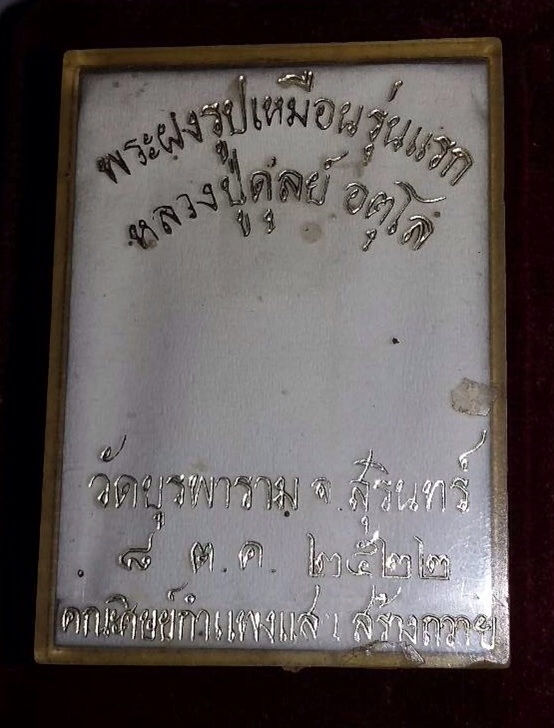 พระผงรูปเหมือนรุ่นแรก
หลวงปู่ดุลย์ อตุโล
วัดบูรพาราม จ. สุรินทร์
๘ ต.ค. ๒๕๒๒
คณะศิษย์กำแพงแสน สร้างถวาย